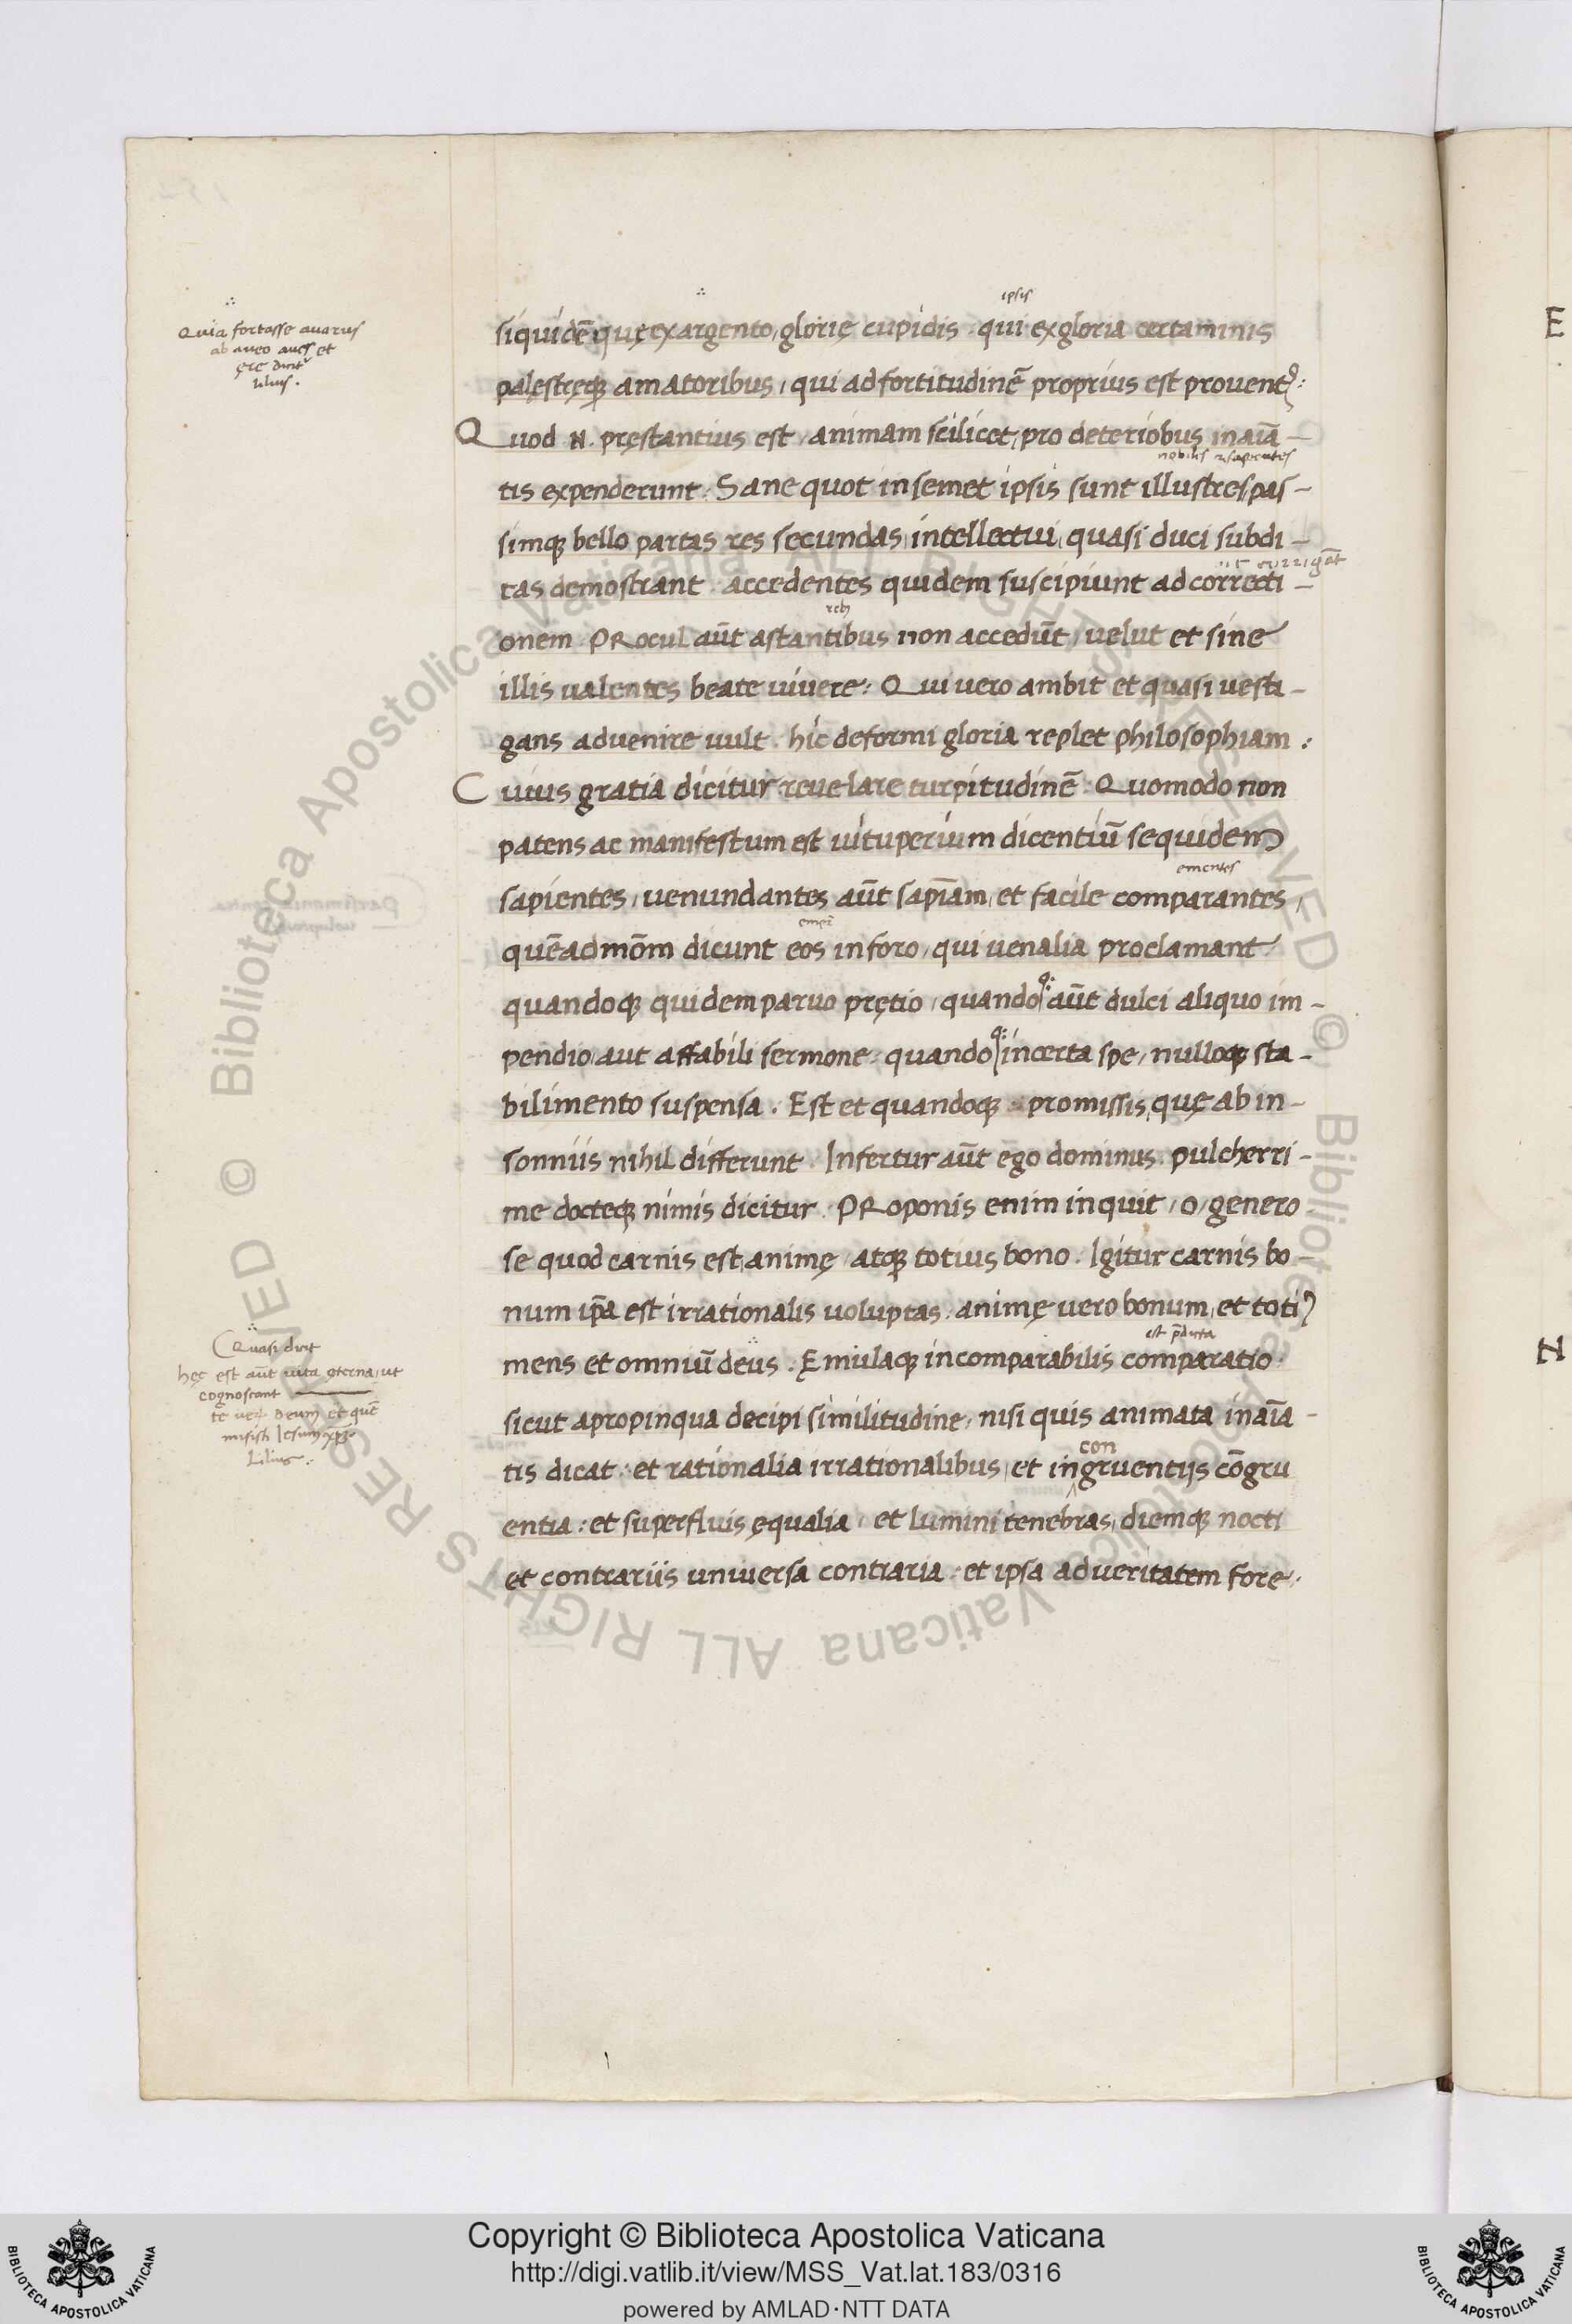 ipsis
siquidē quę ex argento, glorię cupidis. qui ex gloria certaminis
palęstręq; amatoribus, qui ad fortitudinē proprius est
Quod .N. pręstantius est, animam scilicet, pro deterioribus inaīa-
nobilis
tis expenderunt. Sane quot in semet ipsis sunt illustres pas-
simq; bello partas res secundas, intellectui, quasi duci subdi-
ut corrigāt
tas demostrant. accedentes quidem suscipiunt ad correcti-
reb;
onem. PRocul aūt astantibus non accedūt, velut et sine
illis valentes beate vivere: Qui vero ambit et quasi vesti-
gans advenire vult. hic deformi gloria replet philosophiam:
Cuius gratia dicitur revelare turpitudinē. Quomodo non
patens ac manifestum est vituperium dicentiū se quidem
ementes
sapientes, venundantes aūt sapīam, et facile comparantes,
quēadmōm dicunt eos in foro, qui venalia proclamant
quandoq; quidem parvo pretio, quandoq; aūt dulci aliquo im-
pendio, aut affabili sermone. quandoq; incerta spe, nulloq; sta-
bilimento suspensa. Est et quandoq; promissis, quę ab in-
somniis nihil differunt. Infertur aūt ego dominus. pulcherri-
me docteq; nimis dicitur. PRoponis enim inquit, o, genero-
se quod carnis est, animę, atq; totius bono. Igitur carnis bo-
num ip̄a est irrationalis voluptas. animę vero bonum, et toti9
est p̄dicta
mens et omniū deus. Emulaq; incomparabilis comparatio.
sicut apropinqua decipi similitudine, nisi quis animata inaīa-
tis dicat. et rationalia irrationalibus, et incongruentijs cōgru
entia: et superfluis ęqualia. et lumini tenebras, diemq; nocti
et contrariis universa contraria. et ipsa ad veritatem fore.
Quia fortasse avarus
ab aveo aves et
ęre
Lilius.
Quasi dicit
hęc est aūt vita ęterna, ut
cognoscant
te deum et quē
misisti Iesum
Lilius.
E
N
Copyright © Biblioteca Apostolica Vaticana
http://digi.vatlib.it/view/MSS_Vat.lat.183/0316
powered by AMLAD·NTT DATA
BIBLIOTECA APOSTOLICA VATICANA
BIBLIOTECA APOSTOLICA VATICANA
© Biblioteca Apostolica Vaticana ALL RIGHTS RESERVED © Biblioteca Apostolica Vaticana ALL RIGHTS RESERVED